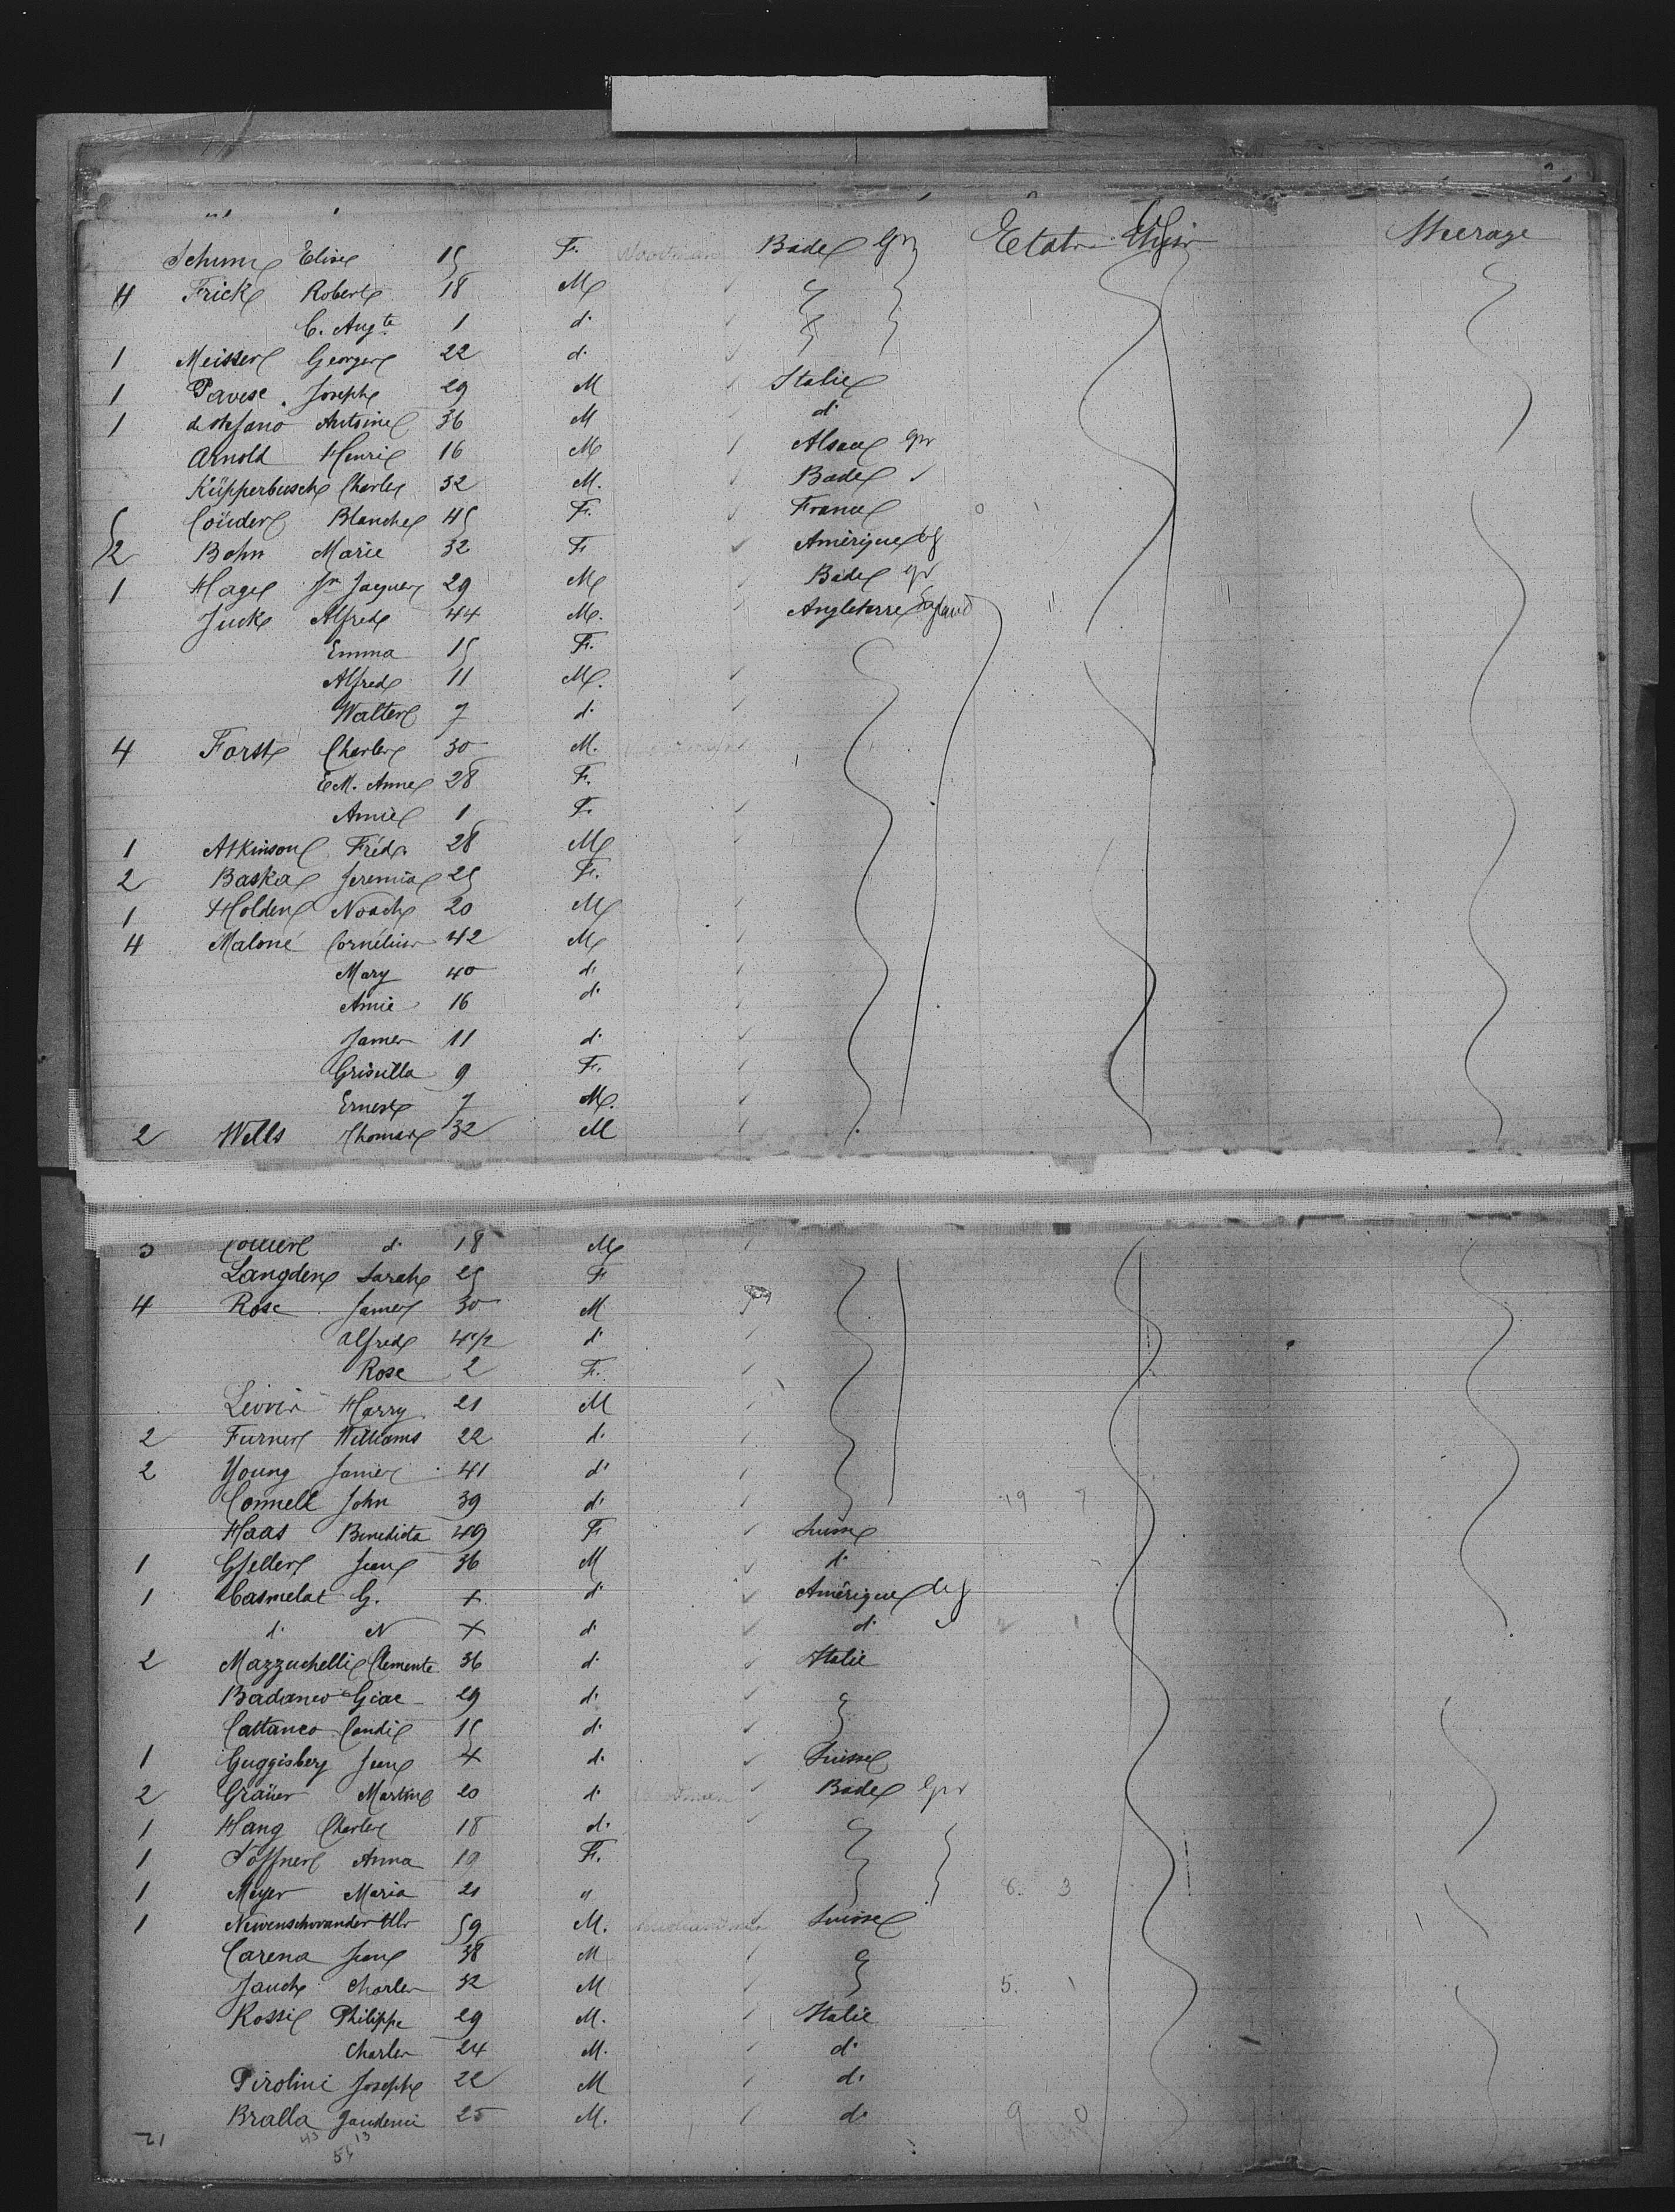 Elise 15 F. Bade Gr Etats Unis Steerage
4 Frick Robert 18 M
C. Augte 1 d.
1 Meister George 22 d.
1 Pavese Joseph 29 M Italie
1 de Stefano Antoine 36 M d.
Arnold Henri 16 M Alsace Gr
Küpperbusch Charles 32 M. Bade
Blanche 45 F. France
2 Bohn Marie 32 F Amérique
1 Hage Jn Jacques 29 M Bade Gr
Juck Alfred 44 M. Angleterre England
Emma 15 F.
Alfred 11 M.
Walter 7 d.
4 Forst Charles 30 M.
E.M. Anne 28 F.
Amie 1 F.
1 Atkinson Fréd. 28 M
2 Baska Jeremia 25 F.
1 Holden Noach 20 M
4 Maloné Cornélius 42 M
Mary 40 d.
Amie 16 d.
James 11 d.
9 F.
Ernest 7 M.
2 Wells Thomas 32 M
d. 18 M
Langden Sarah 25 F
4 Rose James 30 M
Alfred 4 1/2 d.
Rose 2 F.
Harry 21 M
2 Furner Williams 22 d.
2 Young James 41 d.
Connell John 39 d. 19 7
Haas Benedicta 49 F Suisse
1 Gfeller Jean 36 M d.
1 Casmelat G. + d. Amérique
d. N + d. d.
2 Mazzuchelli Clemente 36 d. Italie
Giac 29 d.
Cattaneo 15 d.
1 Guggisberg Jean + d. Suisse
2 Graüer Martin 20 d. Bade Gr
1 Hang Charles 18 d.
1 Anna 19 F.
1 Meyer Maria 21 " 6. 3
1 Neuenschwander Ulr 59 M. Suisse
Carena Jean 38 M
Jauch Charles 32 M 5. 1
Rossi Philippe 29 M. Italie
Charles 24 M. d.
Pirolini Joseph 22 M d.
Bralla 25 M. d. 9 0
43 13